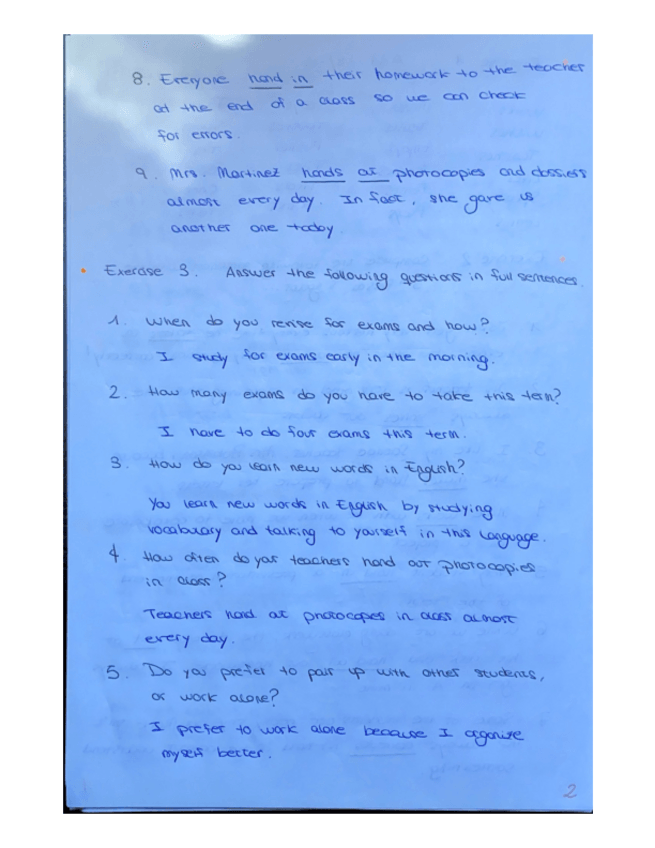 8. Everyone hand in their homework to the teacher
at the end of a class so we can check
for errors.
9. Mrs. Martinez hands out photocopies and dossiers
almost every day. In fact, she gave us
another one today.
• Exercise 3. Answer the following questions in full sentences.
1. When do you revise for exams and how?
I study for exams early in the morning.
2. How many exams do you have to take this term?
I have to do four exams this term.
3. How do you learn new words in English?
You learn new words in English by studying
vocabulary and talking to yourself in this language.
4. How often do your teachers hand out photocopies
in class?
Teachers hand out photocopies in class almost
every day.
5. Do you prefer to pair up with other students,
or work alone?
I prefer to work alone because I organise
myself better.
2